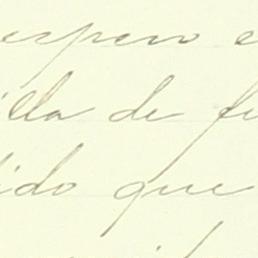 espero e
illa de fu
dido que